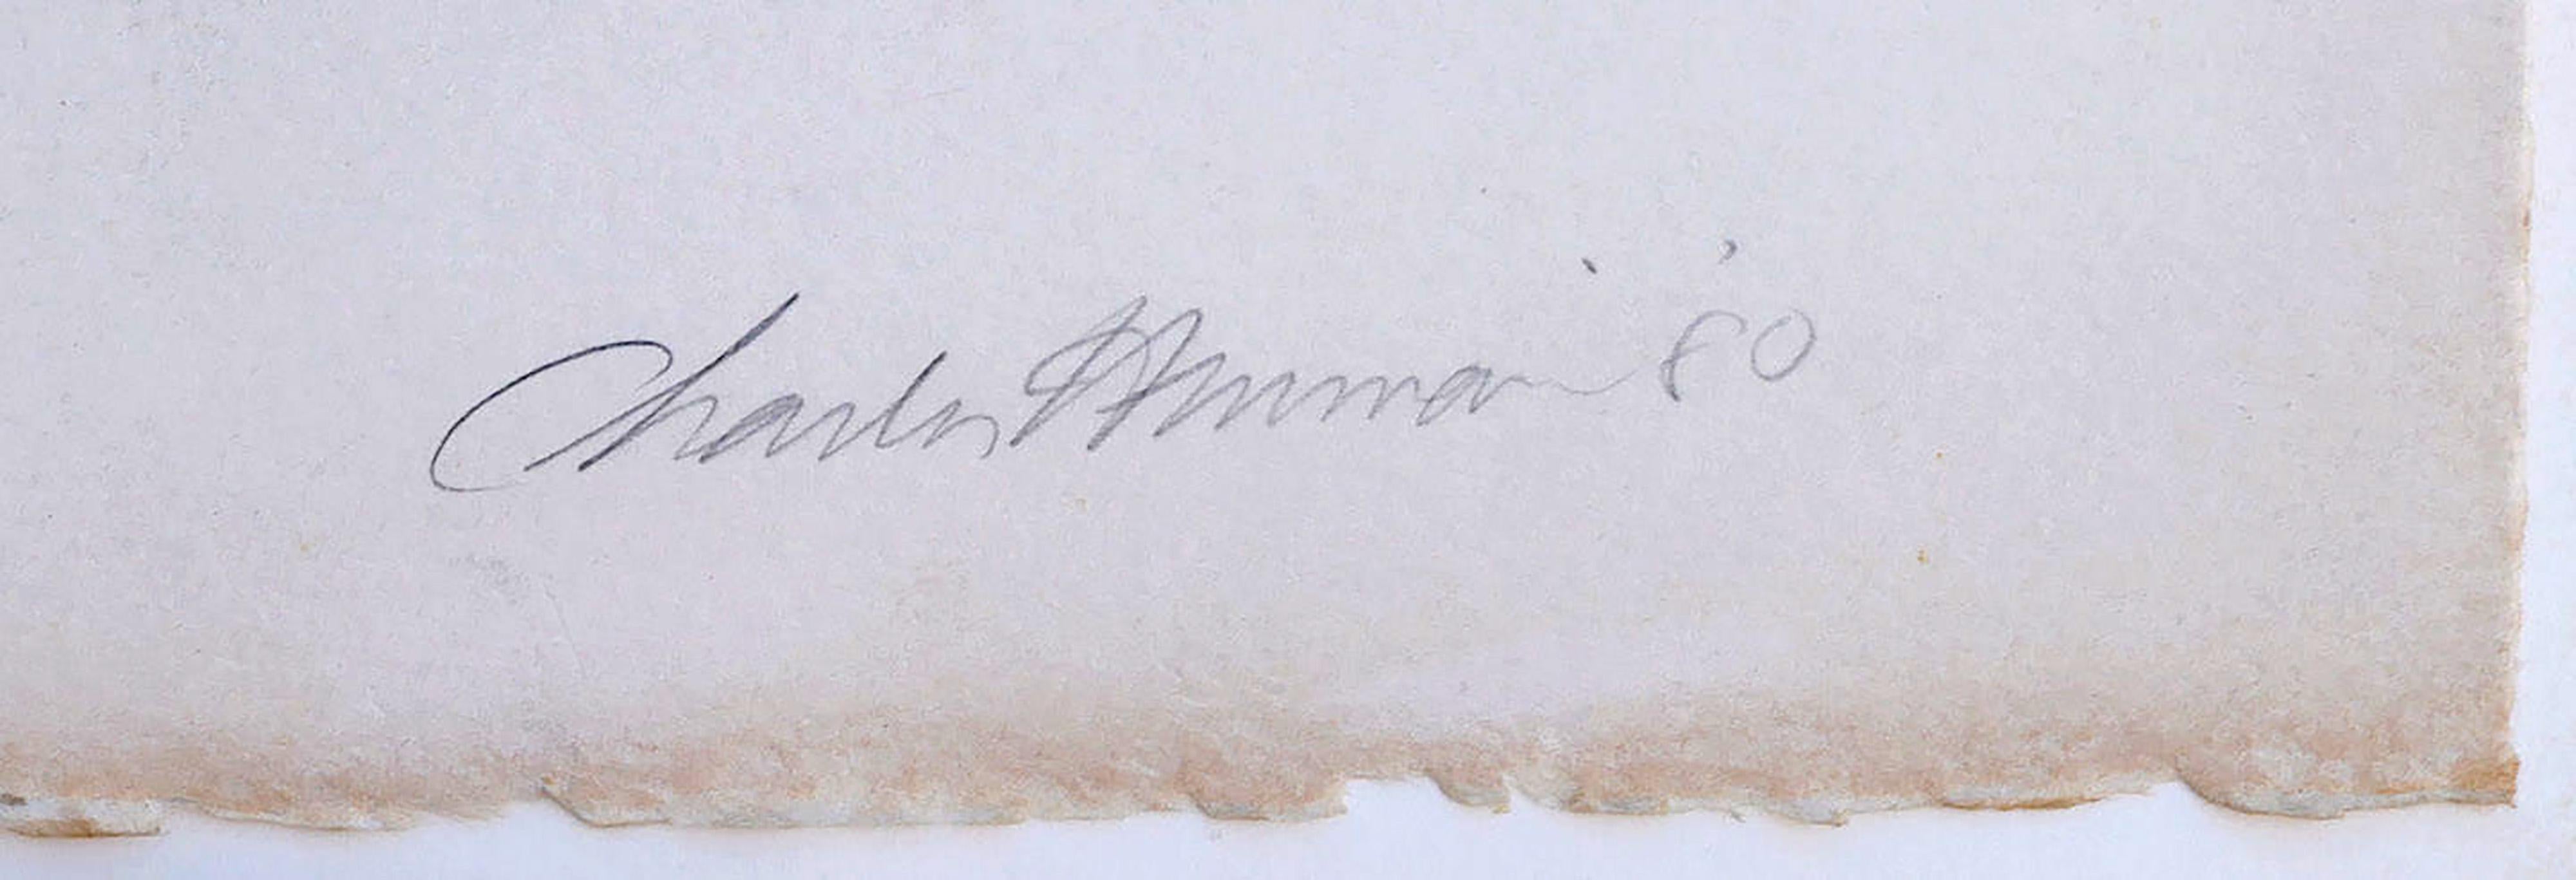 Charles Hinman '80